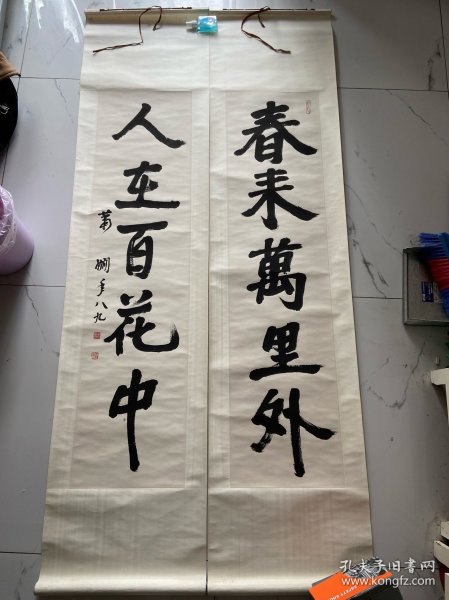 春来萬里外
人在百花中
萧娴年八九
孔夫子旧书网
www.kongfz.com